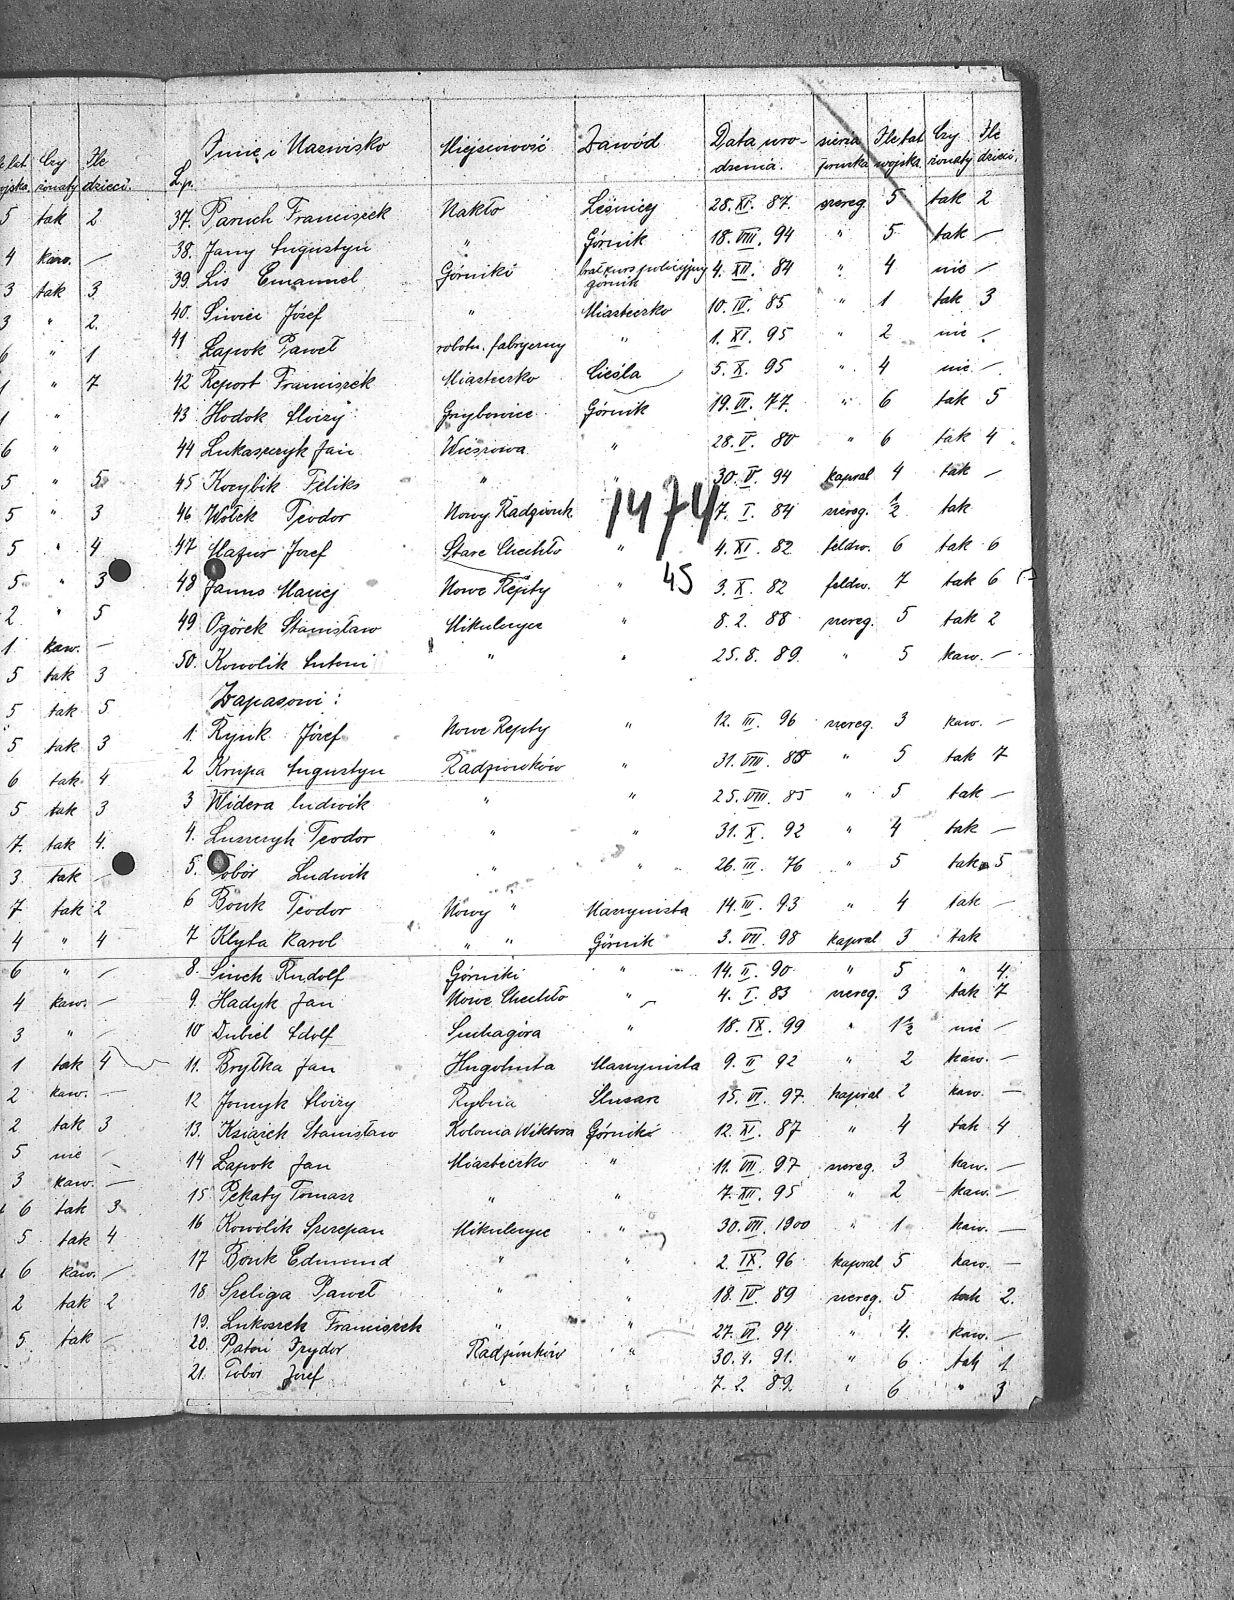 L.p. Imię i Nazwisko Miejscowość Zawód Data uro-dzenia. Ile lat wojska Czy żonaty Ile dzieci.
5 tak 2 37. Paruch Franciszek Nakło Leśniczy 28. XI. 87. szereg. 5 tak 2
4 kaw. — 38. Jany Augustyn " Górnik 18. VIII. 94 " 5 tak —
3 tak 3 39. Lis Emanuel Górniki brał kurs policyjny górnik 4. XII. 84 " 4 nie —
3 " 2. 40. Siwiec Józef " Miasteczko 10. IV. 85 " 1 tak 3
6 " 1 41 Łapok Paweł robotn. fabryczny " 1. XI. 95 " 2 nie —
1 " 7 42 Report Franciszek Miasteczko Cieśla 5. X. 95 " 4 nie —
1 " 43 Hodok Alojzy Grzybowice Górnik 19. VI. 77. " 6 tak 5
6 " 44 Lukaszczyk Jan Wieszowa " 28. V. 80 " 6 tak 4
5 " 5 45 Kocybik Feliks " " 30. V. 94 kapral 4 tak —
5 " 3 46 Wołek Teodor Nowy Radzionk. 7. I. 84 szereg. 1/2 tak
1474
5 " 4 47 Mazur Józef Stare Chechło " 4. XI. 82 feldw. 6 tak 6
5 " 3 48 Janus Maciej Nowe Repty " 45 3. X. 82 feldw. 7 tak 6
2 " 5 49 Ogórek Stanisław Mikulczyce " 8. 2. 88 szereg. 5 tak 2
1 kaw. — 50. Kowolik Antoni " " 25. 8. 89. " 5 kaw. —
5 tak 3
5 tak 5 Zapasowi:
5 tak 3 1. Rysik Józef Nowe Repty " 12. III. 96 szereg. 3 kaw. —
6 tak 4 2 Krupa Augustyn Radzionków " 31. VIII. 88 " 5 tak 7
5 tak 3 3 Widera Ludwik " " 25. VIII. 85 " 5 tak —
7. tak 4. 4. Luszczyk Teodor " " 31. X. 92 " 4 tak —
3 tak — 5. Tobór Ludwik " " 26. III. 76 " 5 tak 5
7 tak 2 6 Bonk Teodor Nowy " Maszynista 14. III. 93 " 4 tak —
4 " 4 7 Klyta Karol " " Górnik 3. VII. 98 kapral 3 tak
6 " — 8. Rudolf Górniki " 14. II. 90 " 5 " 4.
4 kaw. — 9. Hadyk Jan Nowe Chechło " 4. I. 83 szereg. 3 tak 7
3 " — 10 Dubiel Adolf Suchagóra " 18. IX. 99 " 1 1/2 nie —
1 tak 4 11. Brytka Jan Hugohuta Maszynista 9. II 92 " 2 kaw. —
2 kaw. — 12 Joncyk Alojzy Rybna Slusarz 15. VI. 97. kapral 2 kaw. —
2 tak 3 13. Książek Stanisław Kolonia Wiktora Górnik 12. XI. 87 " 4 tak 4
5 nie — 14 Łapok Jan Miasteczko " 11. VIII. 97 szereg. 3 kaw. —
3 kaw. — 15 Pękaty Tomasz " " 7. XII. 95 " 2 kaw. —
6 tak 3 16 Kowolik Szczepan Mikulczyce " 30. VII. 1900 " 1 kaw. —
5 tak 4 17 Bonk Edmund " " 2. IX. 96 kapral 5 kaw. —
6 kaw. — 18 Szeliga Paweł " " 18. IV. 89 szereg. 5 tak 2.
2 tak 2 19. Lukoszek Franciszek " " 27. VI. 94 " 4. kaw. —
5. tak — 20. Patoń Izydor Radzionków " 30. 4. 91. " 6 tak 1
21. Tobór Józef " " 7. 2. 89. " 6 " 3